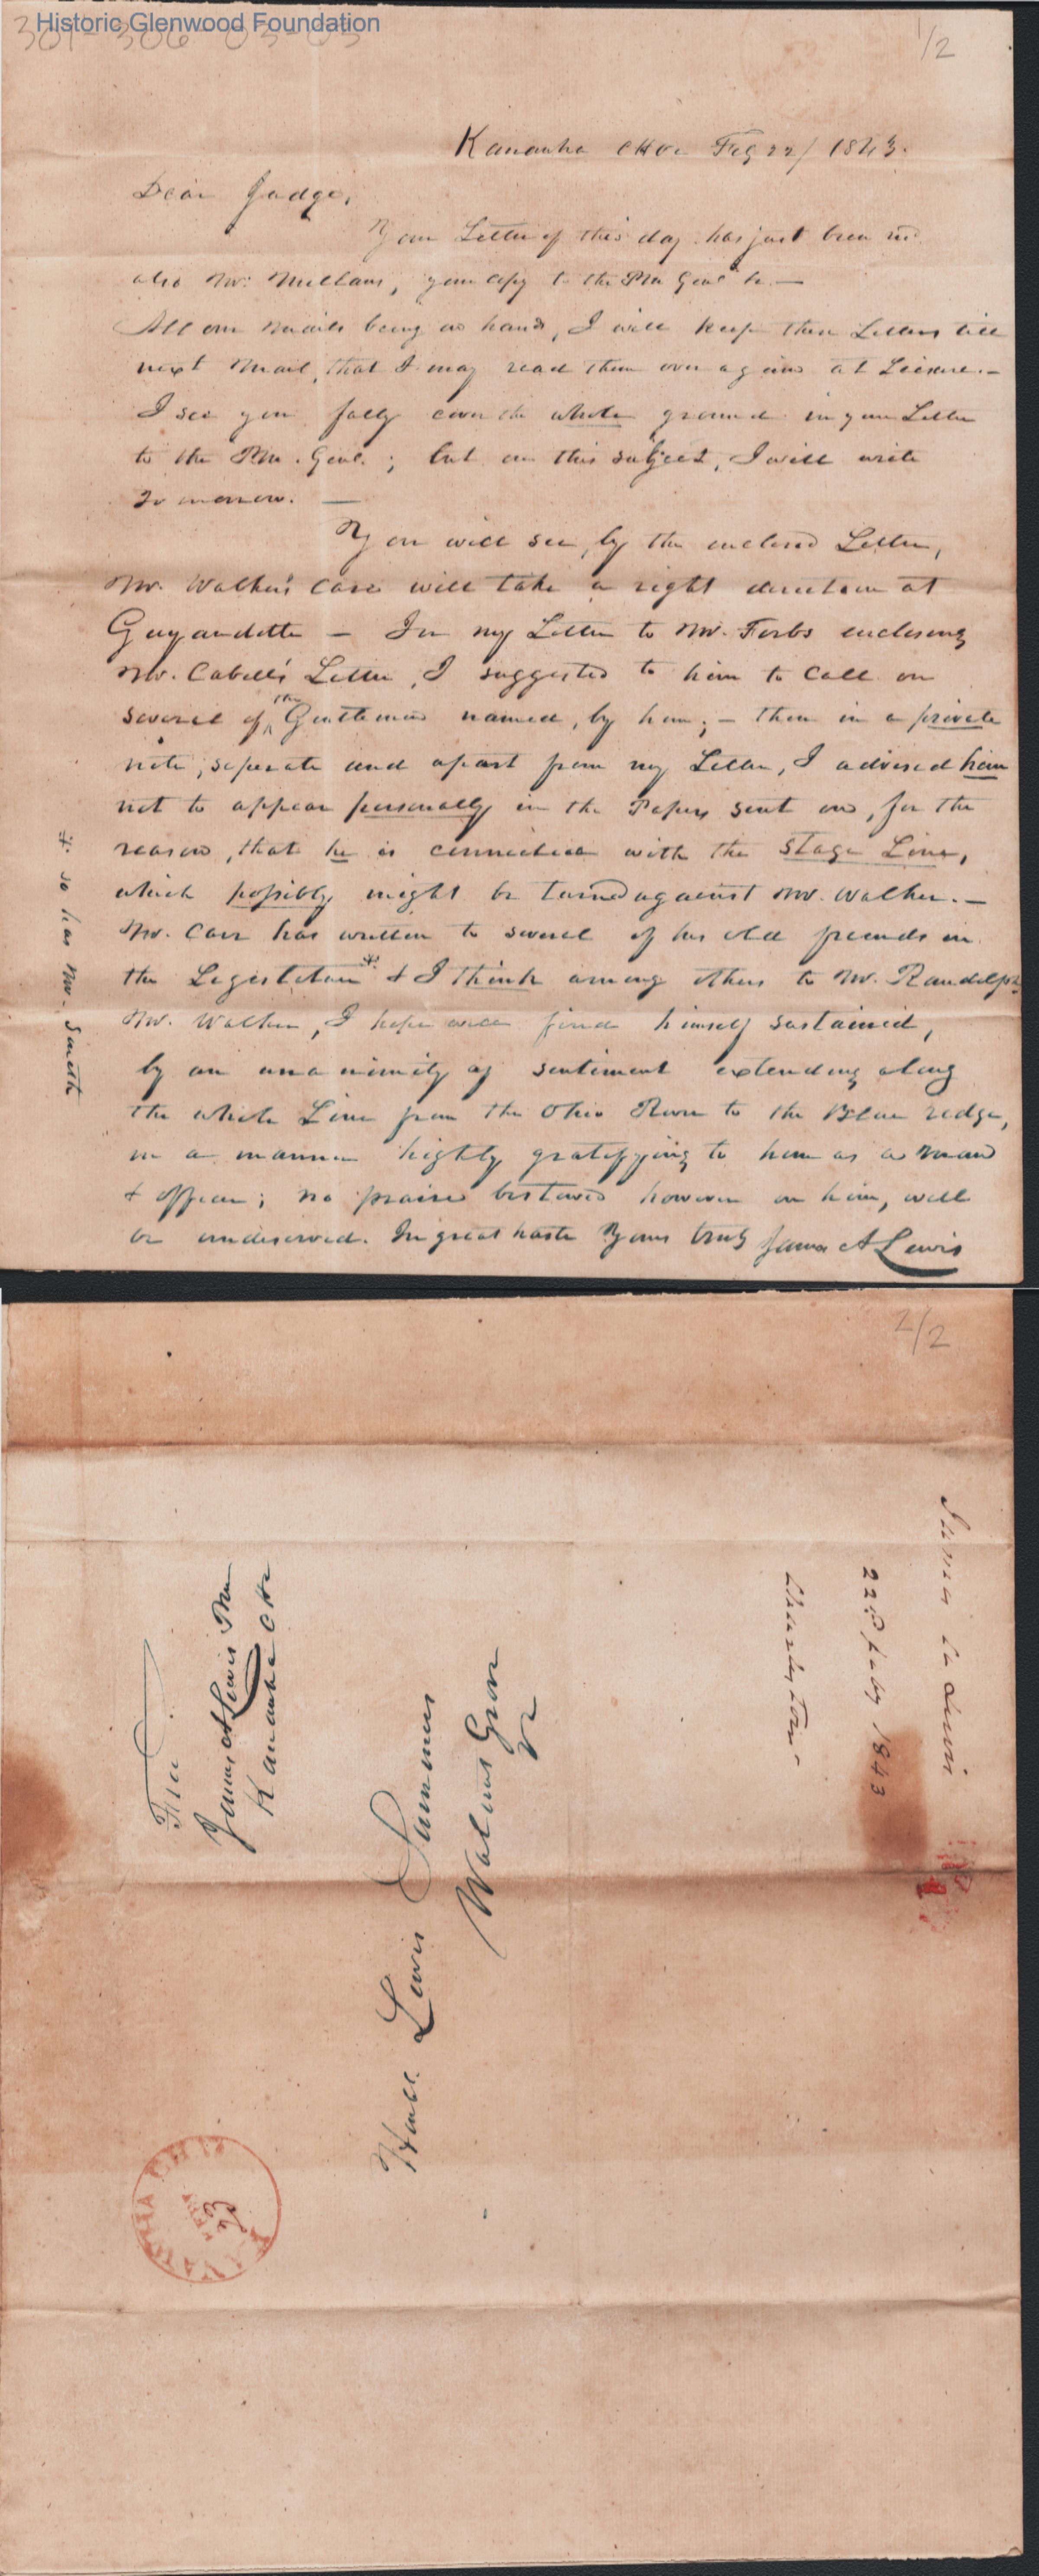 Historic Glenwood Foundation
301-306-03-03
1/2
Kanawha CHo Feb 22/ 1843.
Dear Judge,
Your Letter of this day has just been recd
also Mr: Millans, your copy to the PM Genl &c. —
All our Mails being on hand, I will keep these Letters till
next Mail, that I may read them over again at Leisure. —
I see you fully cover the whole ground in your Letter
to the PM. Genl. ; but on this subject, I will write
To morrow. —
You will see, by the enclosed Letter,
Mr. Walker's case will take a right direction at
Guyandotte — In my Letter to Mr. Forbs enclosing
Mr. Cabell's Letter, I suggested to him to call on
several of the Gentlemen named, by him; — then in a private
note, seperate and apart from my Letter, I advised him
not to appear personally in the Papers sent on, for the
reason, that he is connected with the Stage Line,
which possibly might be turned against Mr. Walker. —
Mr. Carr has written to several of his old friends in
the Legislature * & I think among others to Mr. Randolph
Mr. Walker, I hope will find himself sustained,
by an unanimity of sentiment extending along
the whole Line from the Ohio River to the Blue ridge,
in a manner highly gratifying to him as a man
& officer; no praise bestowed however on him, will
be undeserved. In great haste Yours truly James A Lewis
* so has Mr. Smith
2/2
Free
James A Lewis PM
Kanawha CHo
Honbl Lewis Summers
Walnut Grove
Va
James A Lewis
22d feby 1843
Charleston
KANAWHA C.H. Va
FEB
23